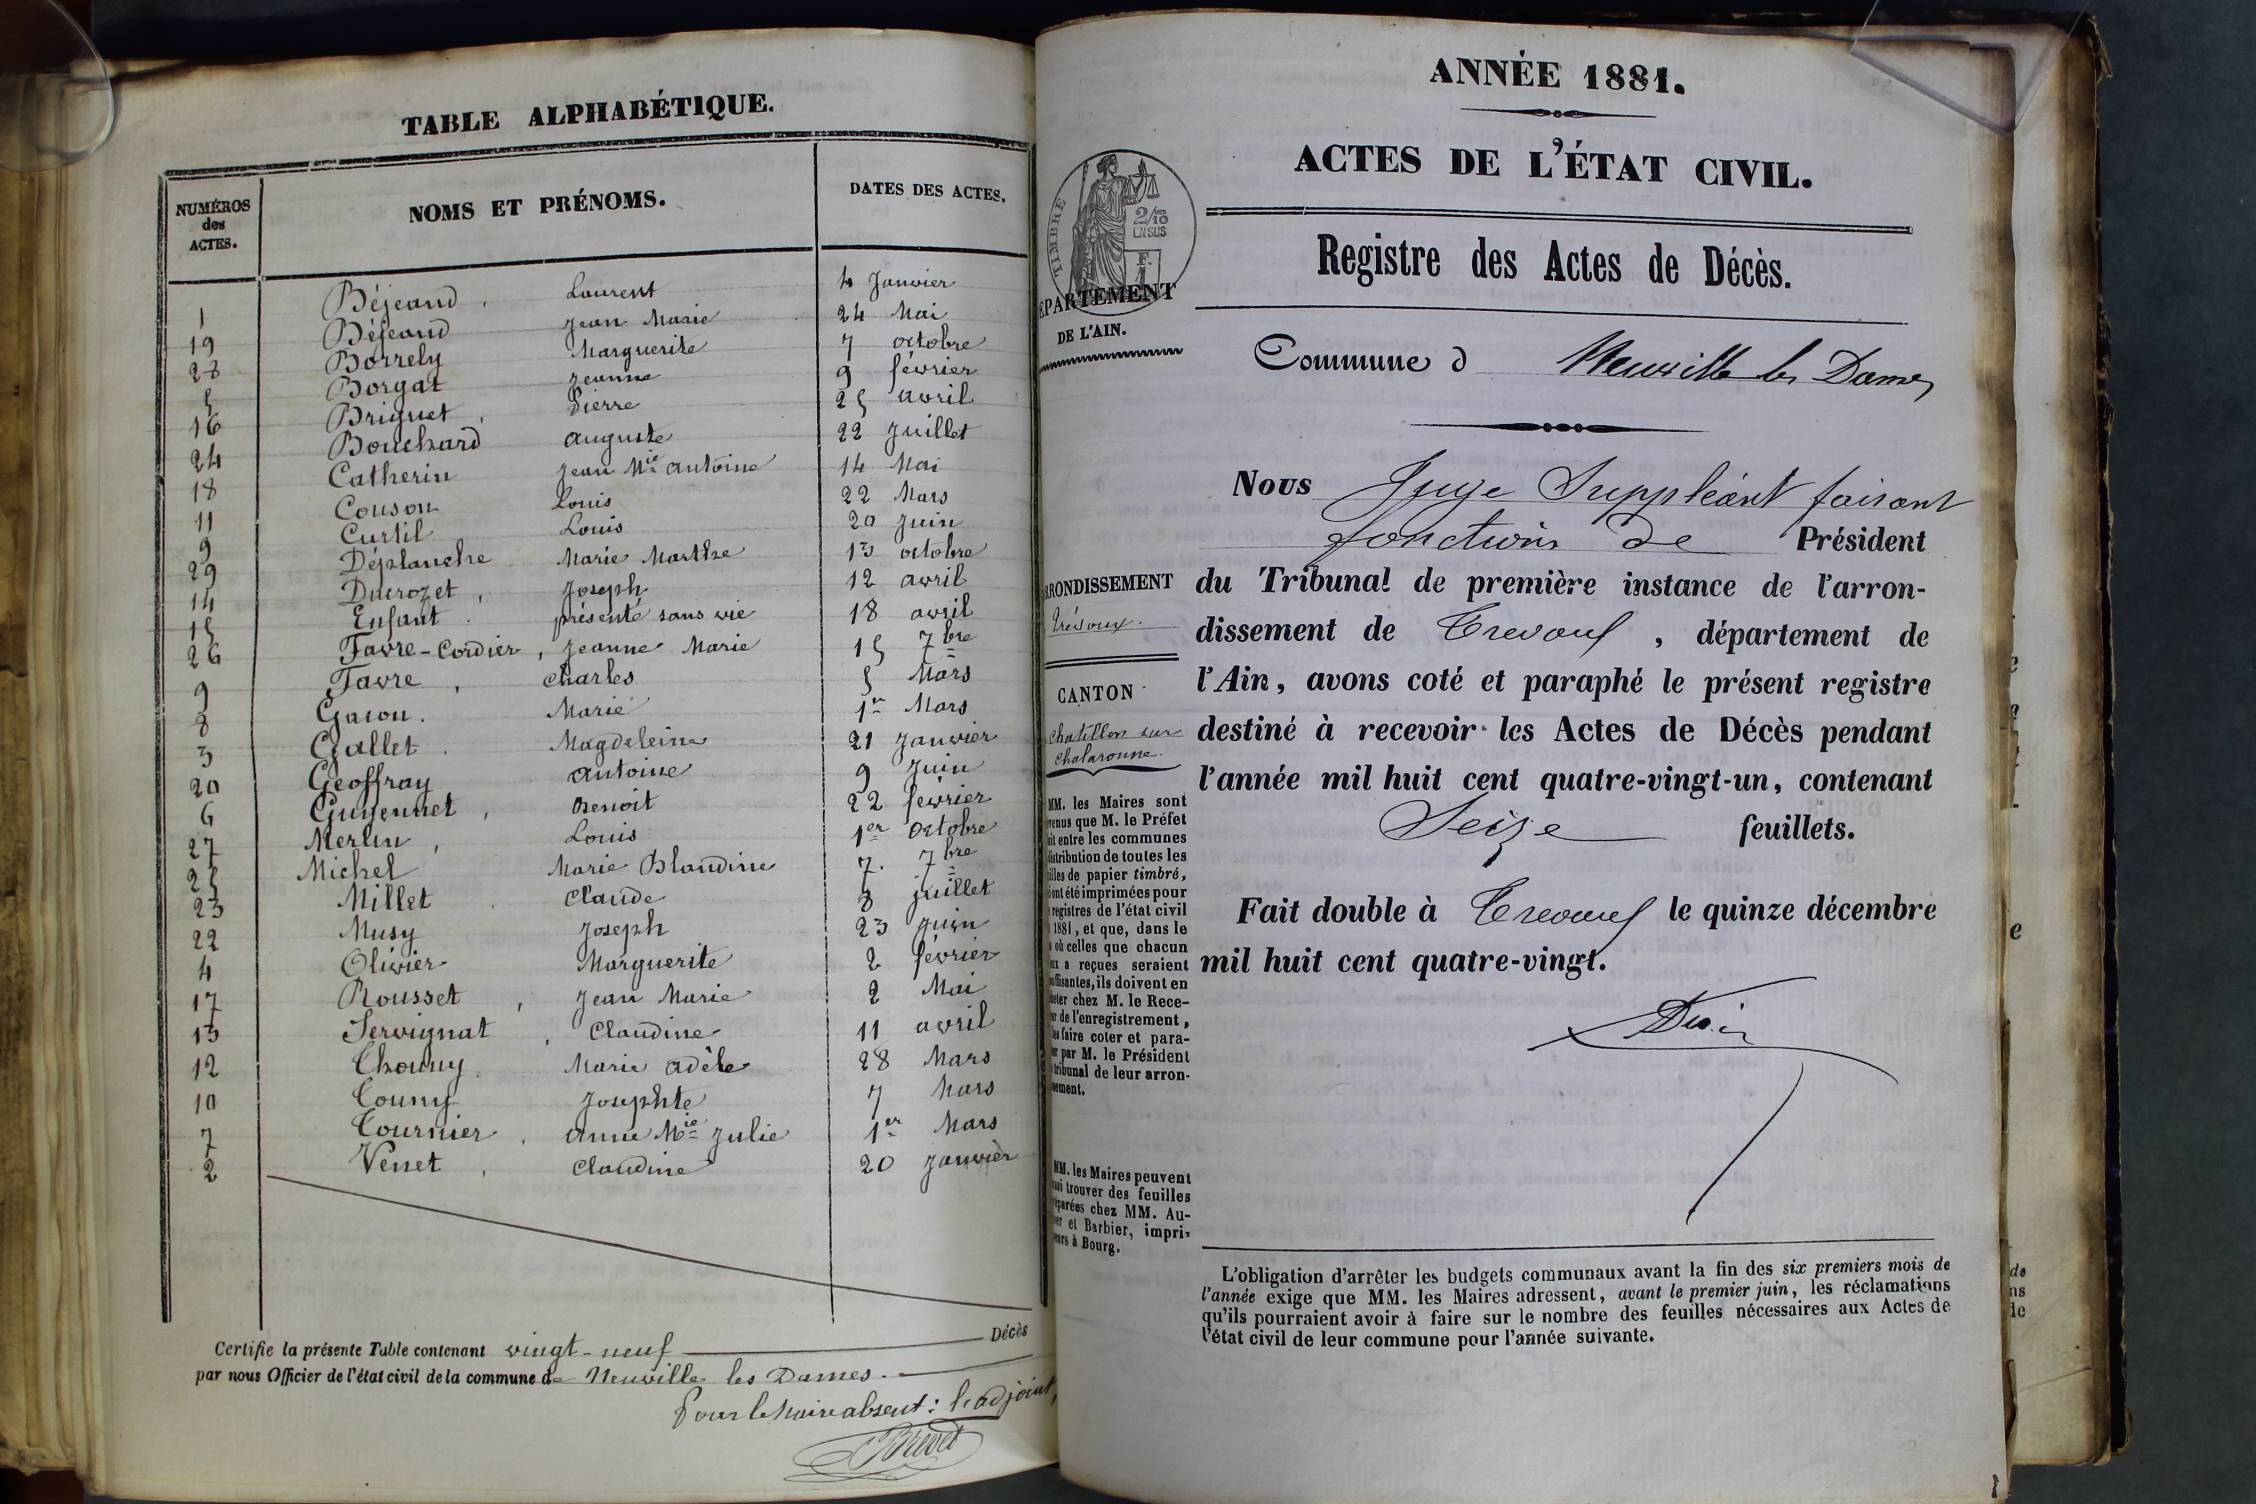 TABLE ALPHABÉTIQUE.
NUMÉROS des ACTES. NOMS ET PRÉNOMS. DATES DES ACTES.
1 Béjeand, Laurent 4 Janvier
19 Béjeand Jean Marie 24 Mai
28 Borrely Marguerite 7 octobre
5 Borgat Jeanne 9 février
16 Briguet, Pierre 25 avril
24 Bouchard auguste 22 Juillet
18 Catherin Jean Mie antoine 14 Mai
11 Couson Louis 22 Mars
9 Curtil Louis 20 Juin
29 Déplanche Marie Marthe 13 octobre
14 Ducrozet, Joseph 12 avril
15 Enfant présenté sans vie 18 avril
26 Favre-Cordier, Jeanne Marie 15 7bre
9 Favre, Charles 5 Mars
8 Gacon. Marie 1er Mars
3 Gallet. Magdeleine 21 Janvier
20 Geoffray antoine 9 Juin
6 Guyennet, Benoit 22 février
27 Merlin, Louis 1er octobre
25 Michel Marie Blandine 7. 7bre
23 Millet Claude 8 juillet
22 Musy Joseph 23 Juin
4 Olivier Marguerite 2 février
17 Rousset, Jean Marie 2 Mai
13 Servignat, Claudine 11 avril
12 Thouny Marie adèle 28 Mars
10 Touny Josephte 7 Mars
7 Tournier, anne Mie Julie 1er Mars
2 Venet, Claudine 20 Janvier
Certifie la présente Table contenant vingt-neuf Décès
par nous Officier de l'état civil de la commune de Neuville les Dames.
Pour le Maire absent: l'adjoint,
Brevet
ANNÉE 1881.
ACTES DE L'ÉTAT CIVIL.
TIMBRE
2/10
EN SUS
Registre des Actes de Décès.
DE L'AIN.
Commune d Neuville les Dames
Nous Juge Suppléant faisant
fonctions de Président
du Tribunal de première instance de l'arron-
dissement de Trevoux, département de
l'Ain, avons coté et paraphé le présent registre
destiné à recevoir les Actes de Décès pendant
l'année mil huit cent quatre-vingt-un, contenant
Seize feuillets.
Fait double à Trevoux le quinze décembre
mil huit cent quatre-vingt.
RRONDISSEMENT
Trévoux.
CANTON
Chatillon sur
Chalaronne.
MM. les Maires sont
venus que M. le Préfet
ait entre les communes
distribution de toutes les
illes de papier timbré,
i ont été imprimées pour
registres de l'état civil
1881, et que, dans le
où celles que chacun
ux a reçues seraient
uffisantes, ils doivent en
heter chez M. le Rece-
ur de l'enregistrement,
les faire coter et para-
er par M. le Président
tribunal de leur arron-
sement.
MM. les Maires peuvent
ssi trouver des feuilles
éparées chez MM. Au-
ier et Barbier, impri-
eurs à Bourg.
L'obligation d'arrêter les budgets communaux avant la fin des six premiers mois de
l'année exige que MM. les Maires adressent, avant le premier juin, les réclamations
qu'ils pourraient avoir à faire sur le nombre des feuilles nécessaires aux Actes de
l'état civil de leur commune pour l'année suivante.